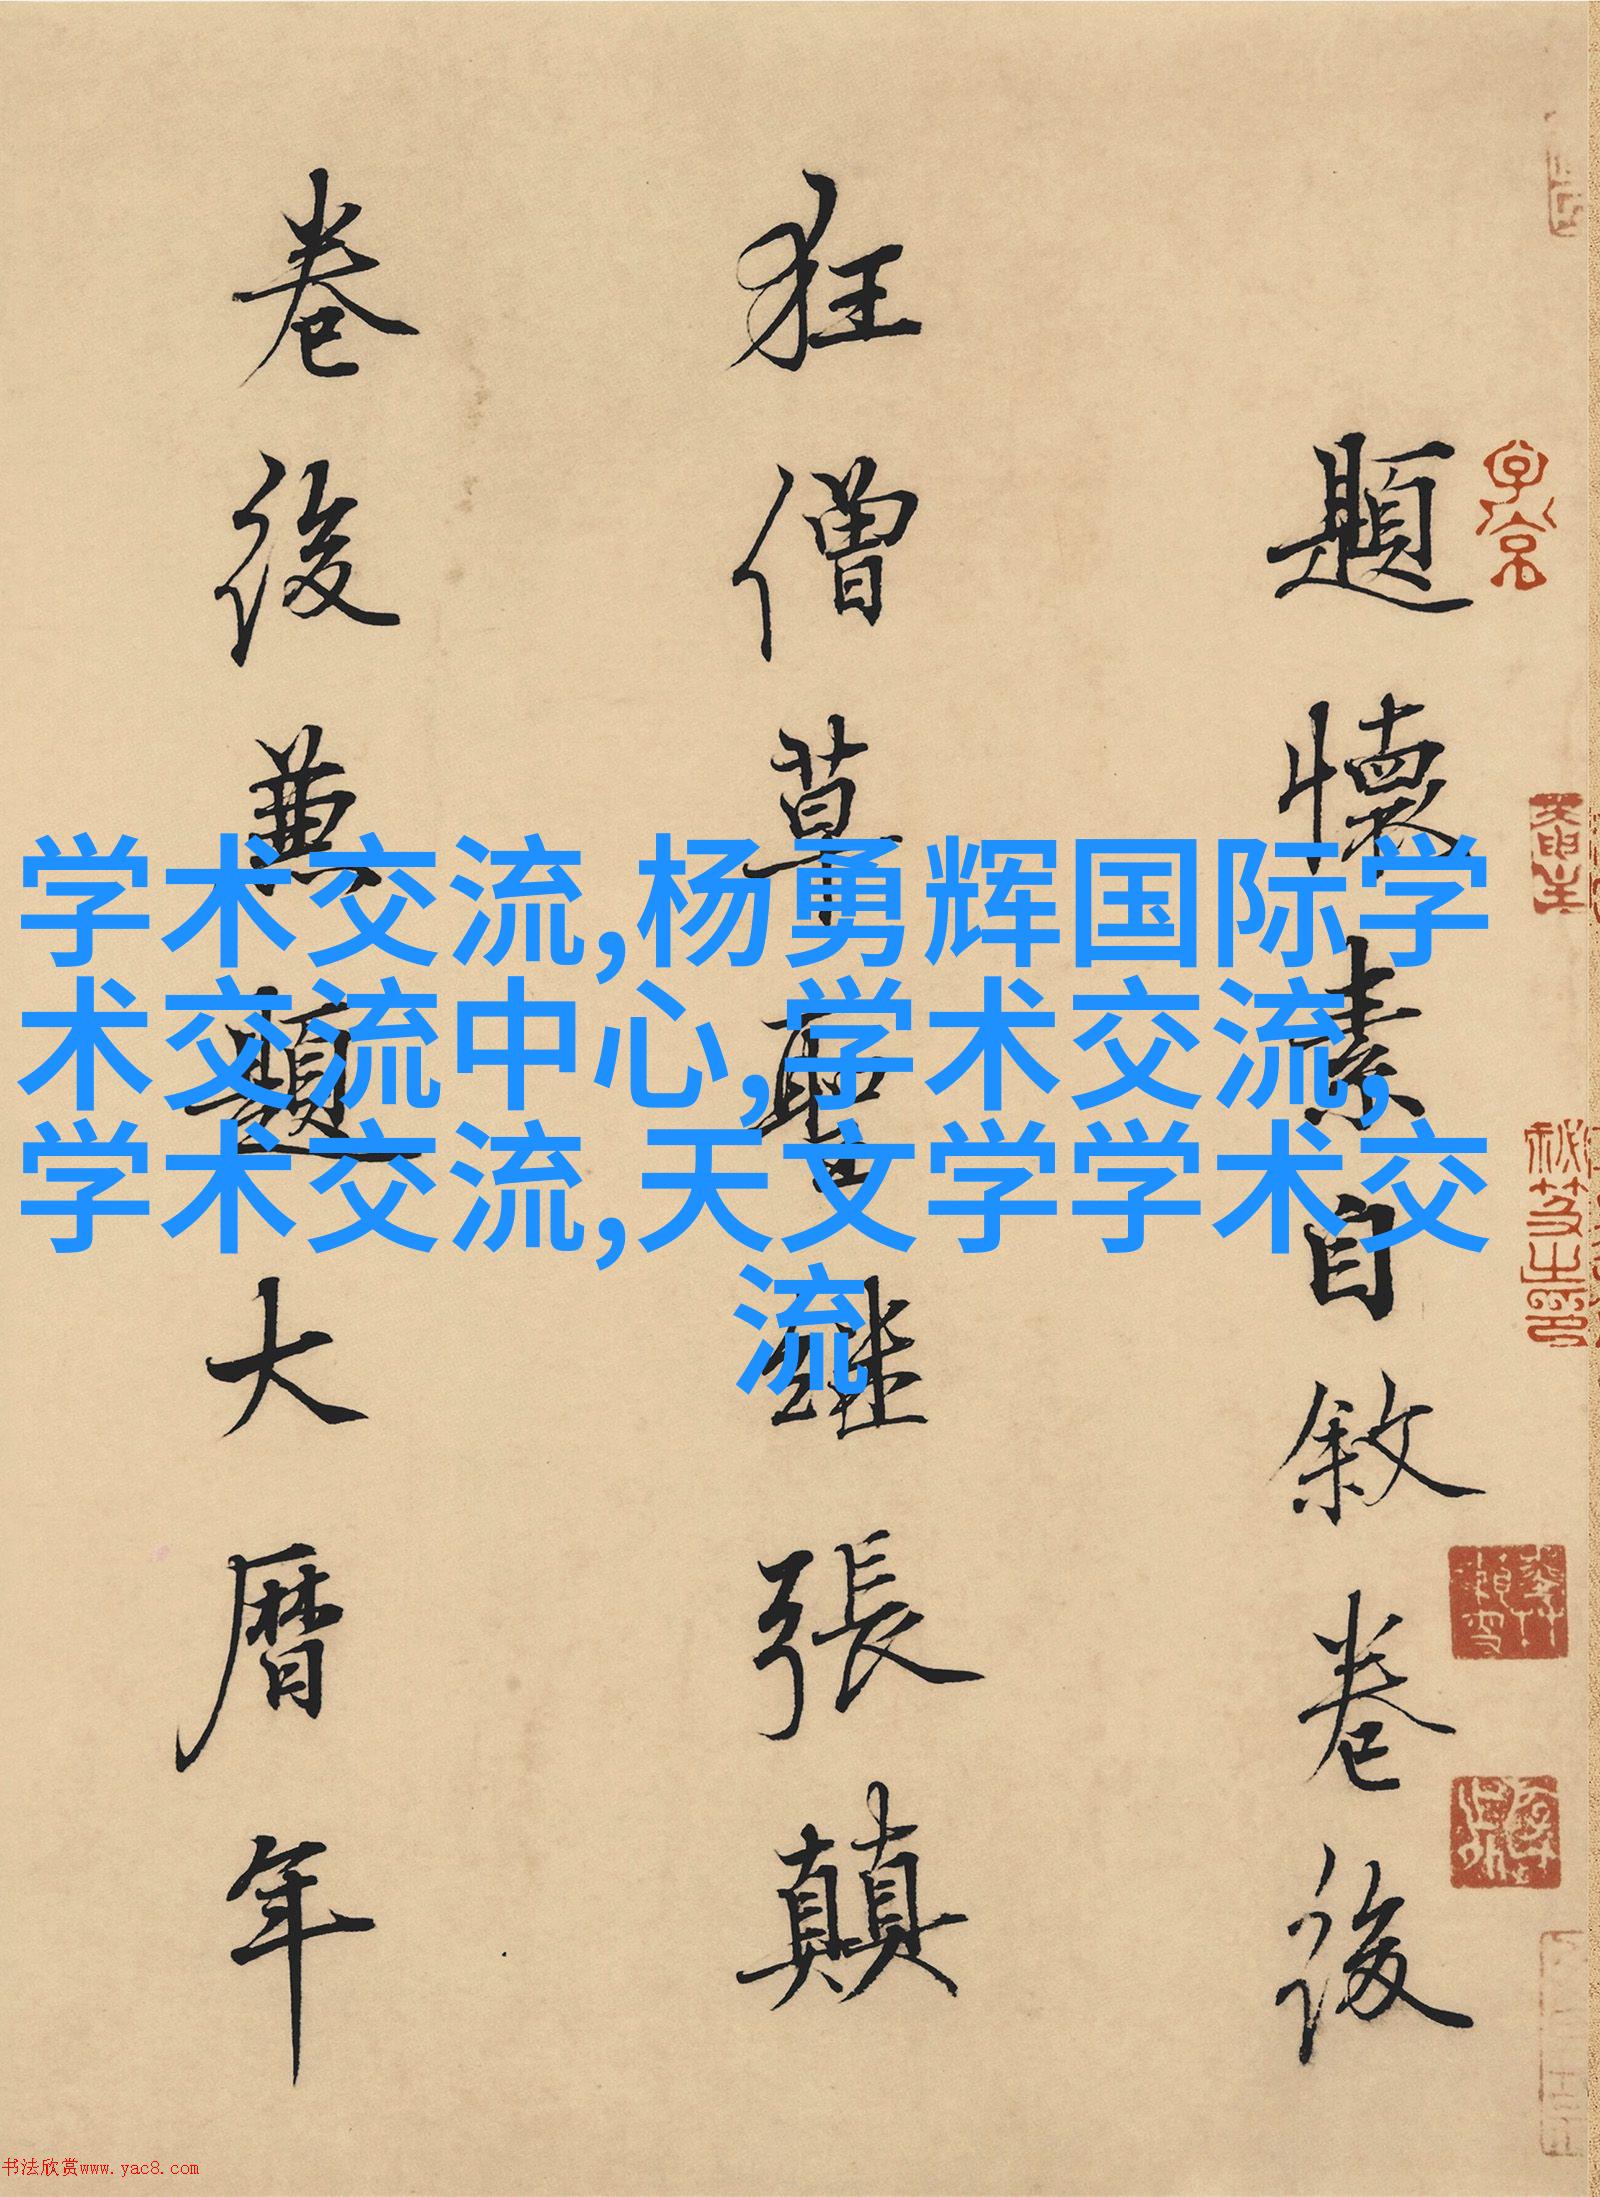 題懷素自敘卷後
狂僧草聖継張顛
卷後兼題大暦年
学术交流,杨勇辉国际学
术交流中心,学术交流,
学术交流,天文学学术交
流
书法欣赏www.yac8.com